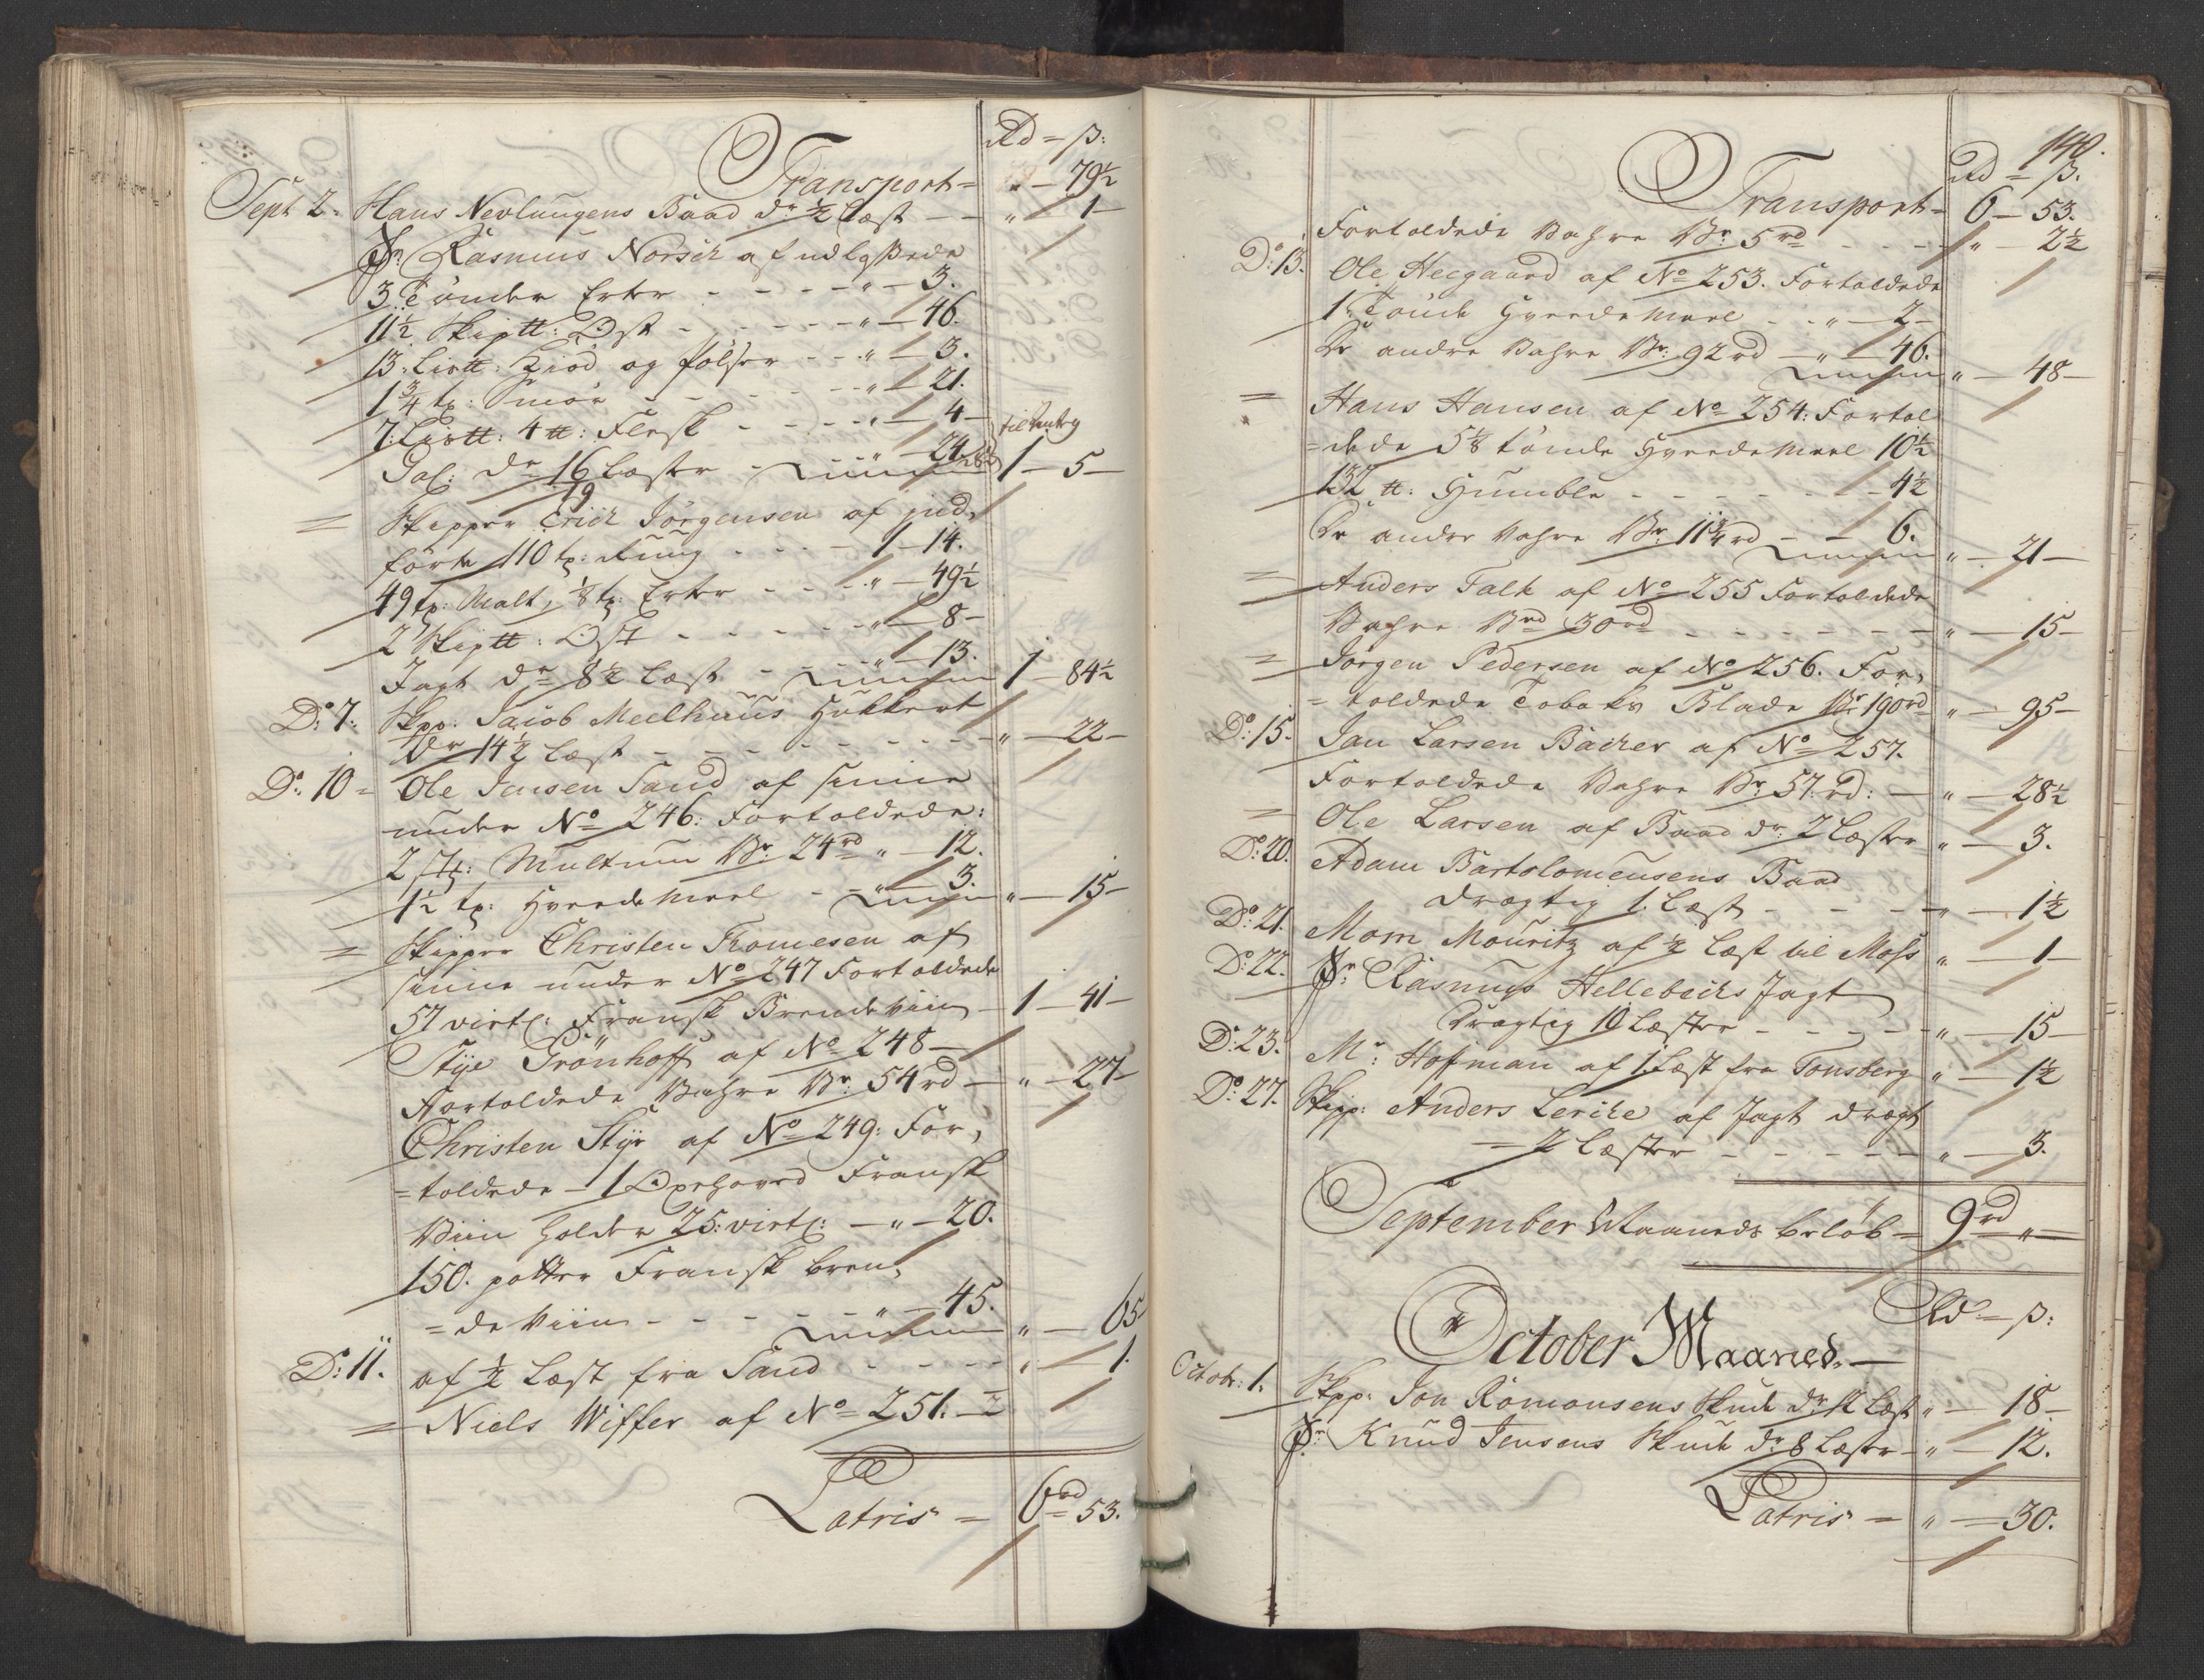 Rd = ß:
Transport = " — 79½
Sept 2. Hans Nevlungens Baad dr. ½ Læst — " — 1 —
Sr. Rasmus Norsch af udlossede
3. Tønder Erter - - - - " — 3.
11½ Skip℔: Ost - - - - - " — 46.
13. Lis℔: Kiød og pølser - - " — 3.
1¾ tr: Smør - - - - - " — 21.
7. Lis℔: 4 ℔: Flesk - - - " — 4 —
Gal: dr. 16 Læster - 24
1 — 5 —
19
= Skipper Erich Jørgensen af ind,
førte 110 tr: Rug - - - 1 — 14.
49 tr: Malt, ⅛ tr: Erter - - - " — 49½
2 Skip℔: Ost - - - - - " — 8 —
Jagt dr. 8½ Læst - - - " — 13.
1 — 84½
Do: 7. Skpp: Jacob Meelhuus Hukkert
dr 14½ Læst - - - - - - " — 22 —
Do: 10 = Ole Jensen Sand af sinne
under No 246: Fortoldede:
2 st: Multum Vr: 24 rd " — 12.
1½ tr: Hvede Meel - - " — 3.
" — 15 —
= Skipper Christen Thomesen af
sinne under No 247 Fortoldede
57 virtl: Fransk Brendeviin — 1 — 41 —
Stije Grönhoff af No 248 —
Fortoldede Vahre Vr: 54 rd — " — 27 —
Christen Stijr af No 249: For,
= toldede — 1 Oxehoved Fransk
Viin holder 25: virtl: — " — 20.
150. potter Fransk bren,
= de Viin - - - - - " — 45.
" — 65 —
Do: 11. af ½ Læst fra Sand - - - - " — 1.
= Niels Wiffer af No 251. —
Latris = 6 rd 53.
140.
Rd = ß.
Transport = 6 — 53.
Fortoldede Vahre Vr: 5 rd - - - " — 2½
Do: 13. Ole Heegaard af No 253. Fortoldede
1 Tønde Hvede Meel - - " — 2 —
De andre Vahre Vr: 92 rd — " — 46.
" — 48 —
= Hans Hansen af No 254: Fortol
= dede 5⅛ tønde Hvede Meel 10½
132 ℔: Humble - - - - - 4½
De andre Vahre Vr: 11¾ rd - - 6.
" — 21 —
= Anders Falk af No 255 Fortoldede
Vahre Vrd 30 rd - - - - - - " — 15 —
= Jørgen Pedersen af No 256. For,
= toldede Tobaks Blade Vr 190 rd " — 95 —
Do: 15. Jan Larsen Bacher af No 257.
Fortoldede Vahre Vr: 57. rd: — " — 28½
= Ole Larsen af Baad dr: 2 Læster " — 3.
Do: 20. Adam Bartolomeusens Baad
drægtig 1. Læst - - - - " — 1½
Do: 21. Mom Mouritz af ½ Læst til Moss " — 1 —
Do: 22. Sr. Rasmus Hellebechs Jagt
drægtig 10 Læster - - - - - " — 15 —
Do: 23. Mr: Hofman af 1. Læst fra Tonsberg " — 1½
Do: 27. Skpp: Anders Lerche af Jagt drægt
= 2 Læster - - - - - " — 3.
September Maaneds beløb = 9 rd "
Rd = ß:
October Maaned. —
Octobr: 1. Skpp: Jon Romonsens Skude dr 12 Læst " — 18 —
Sr. Knud Jensens Skude dr 8 Læster - " — 12.
Latris = " — 30.